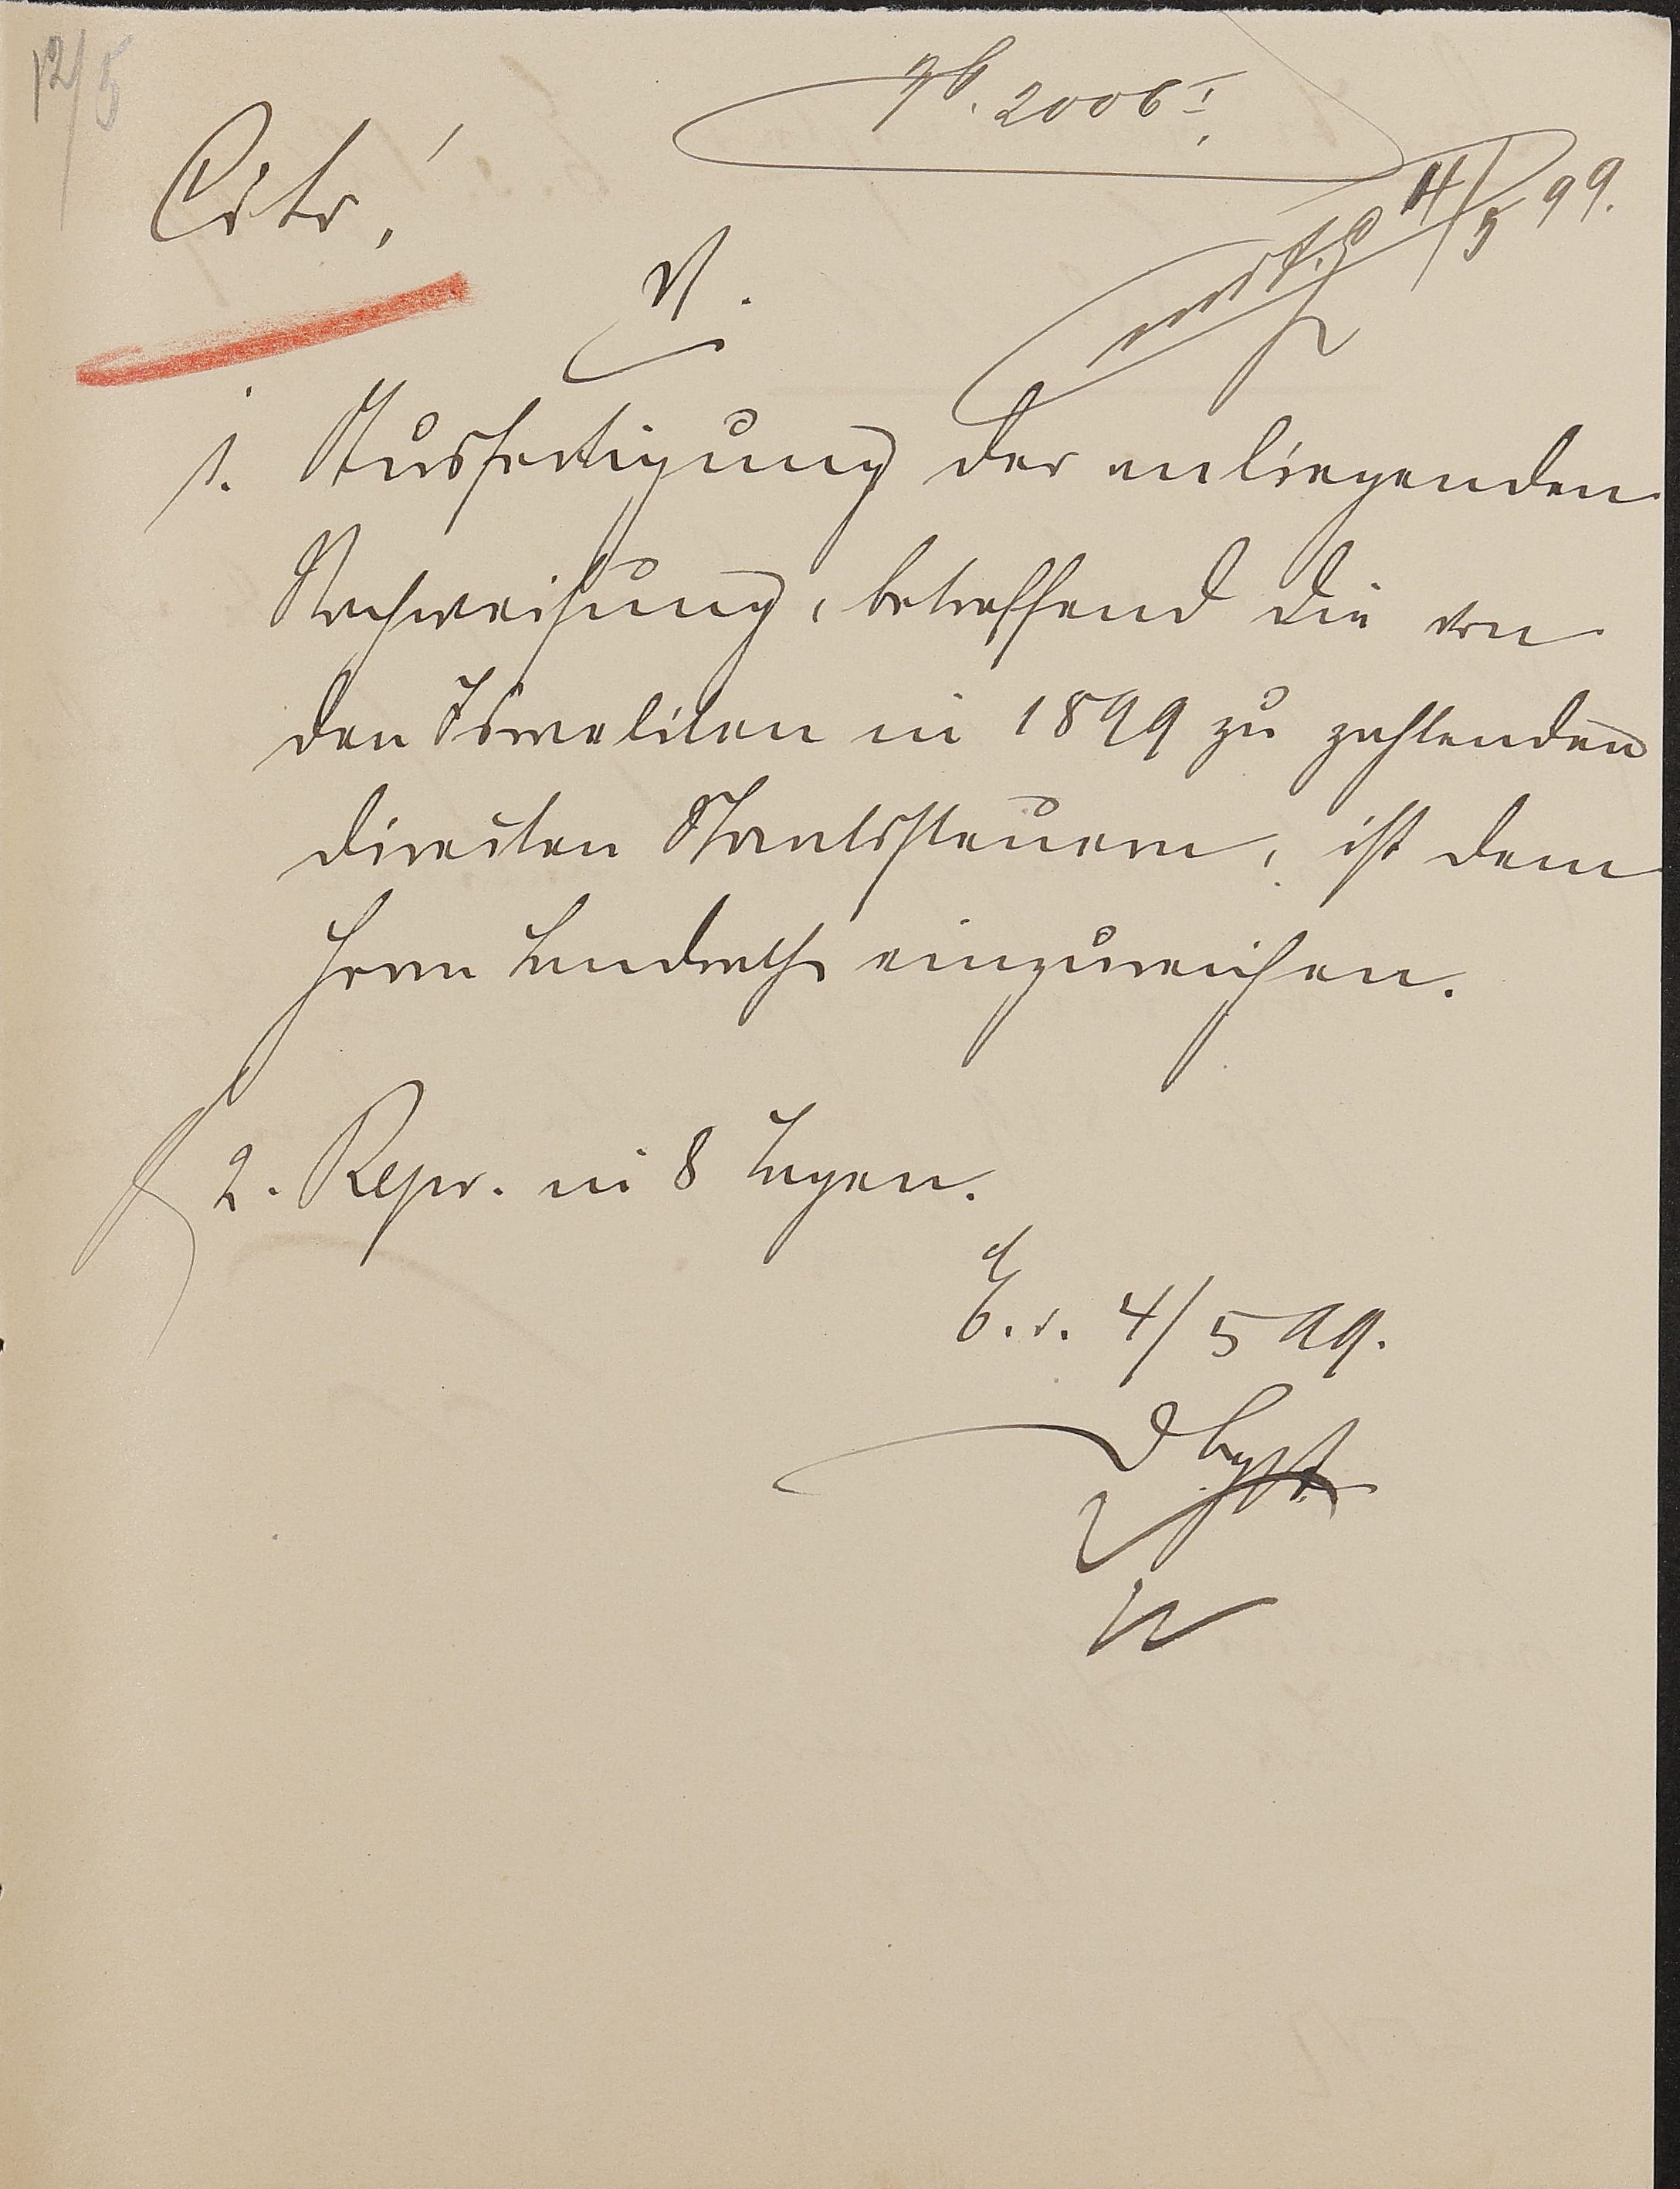 12/5
Jb. 2006 I.
Cito!
4/5 99.
V.
1. Ausfertigung der anliegenden
Nachweisung, betreffend die von
den Israeliten in 1899 zu zahlenden
directen Staatssteuern, ist dem
Herrn Landrath einzureichen.
2. Repr. in 8 Tagen.
E. d. 4/5 99.
D Bgstr.